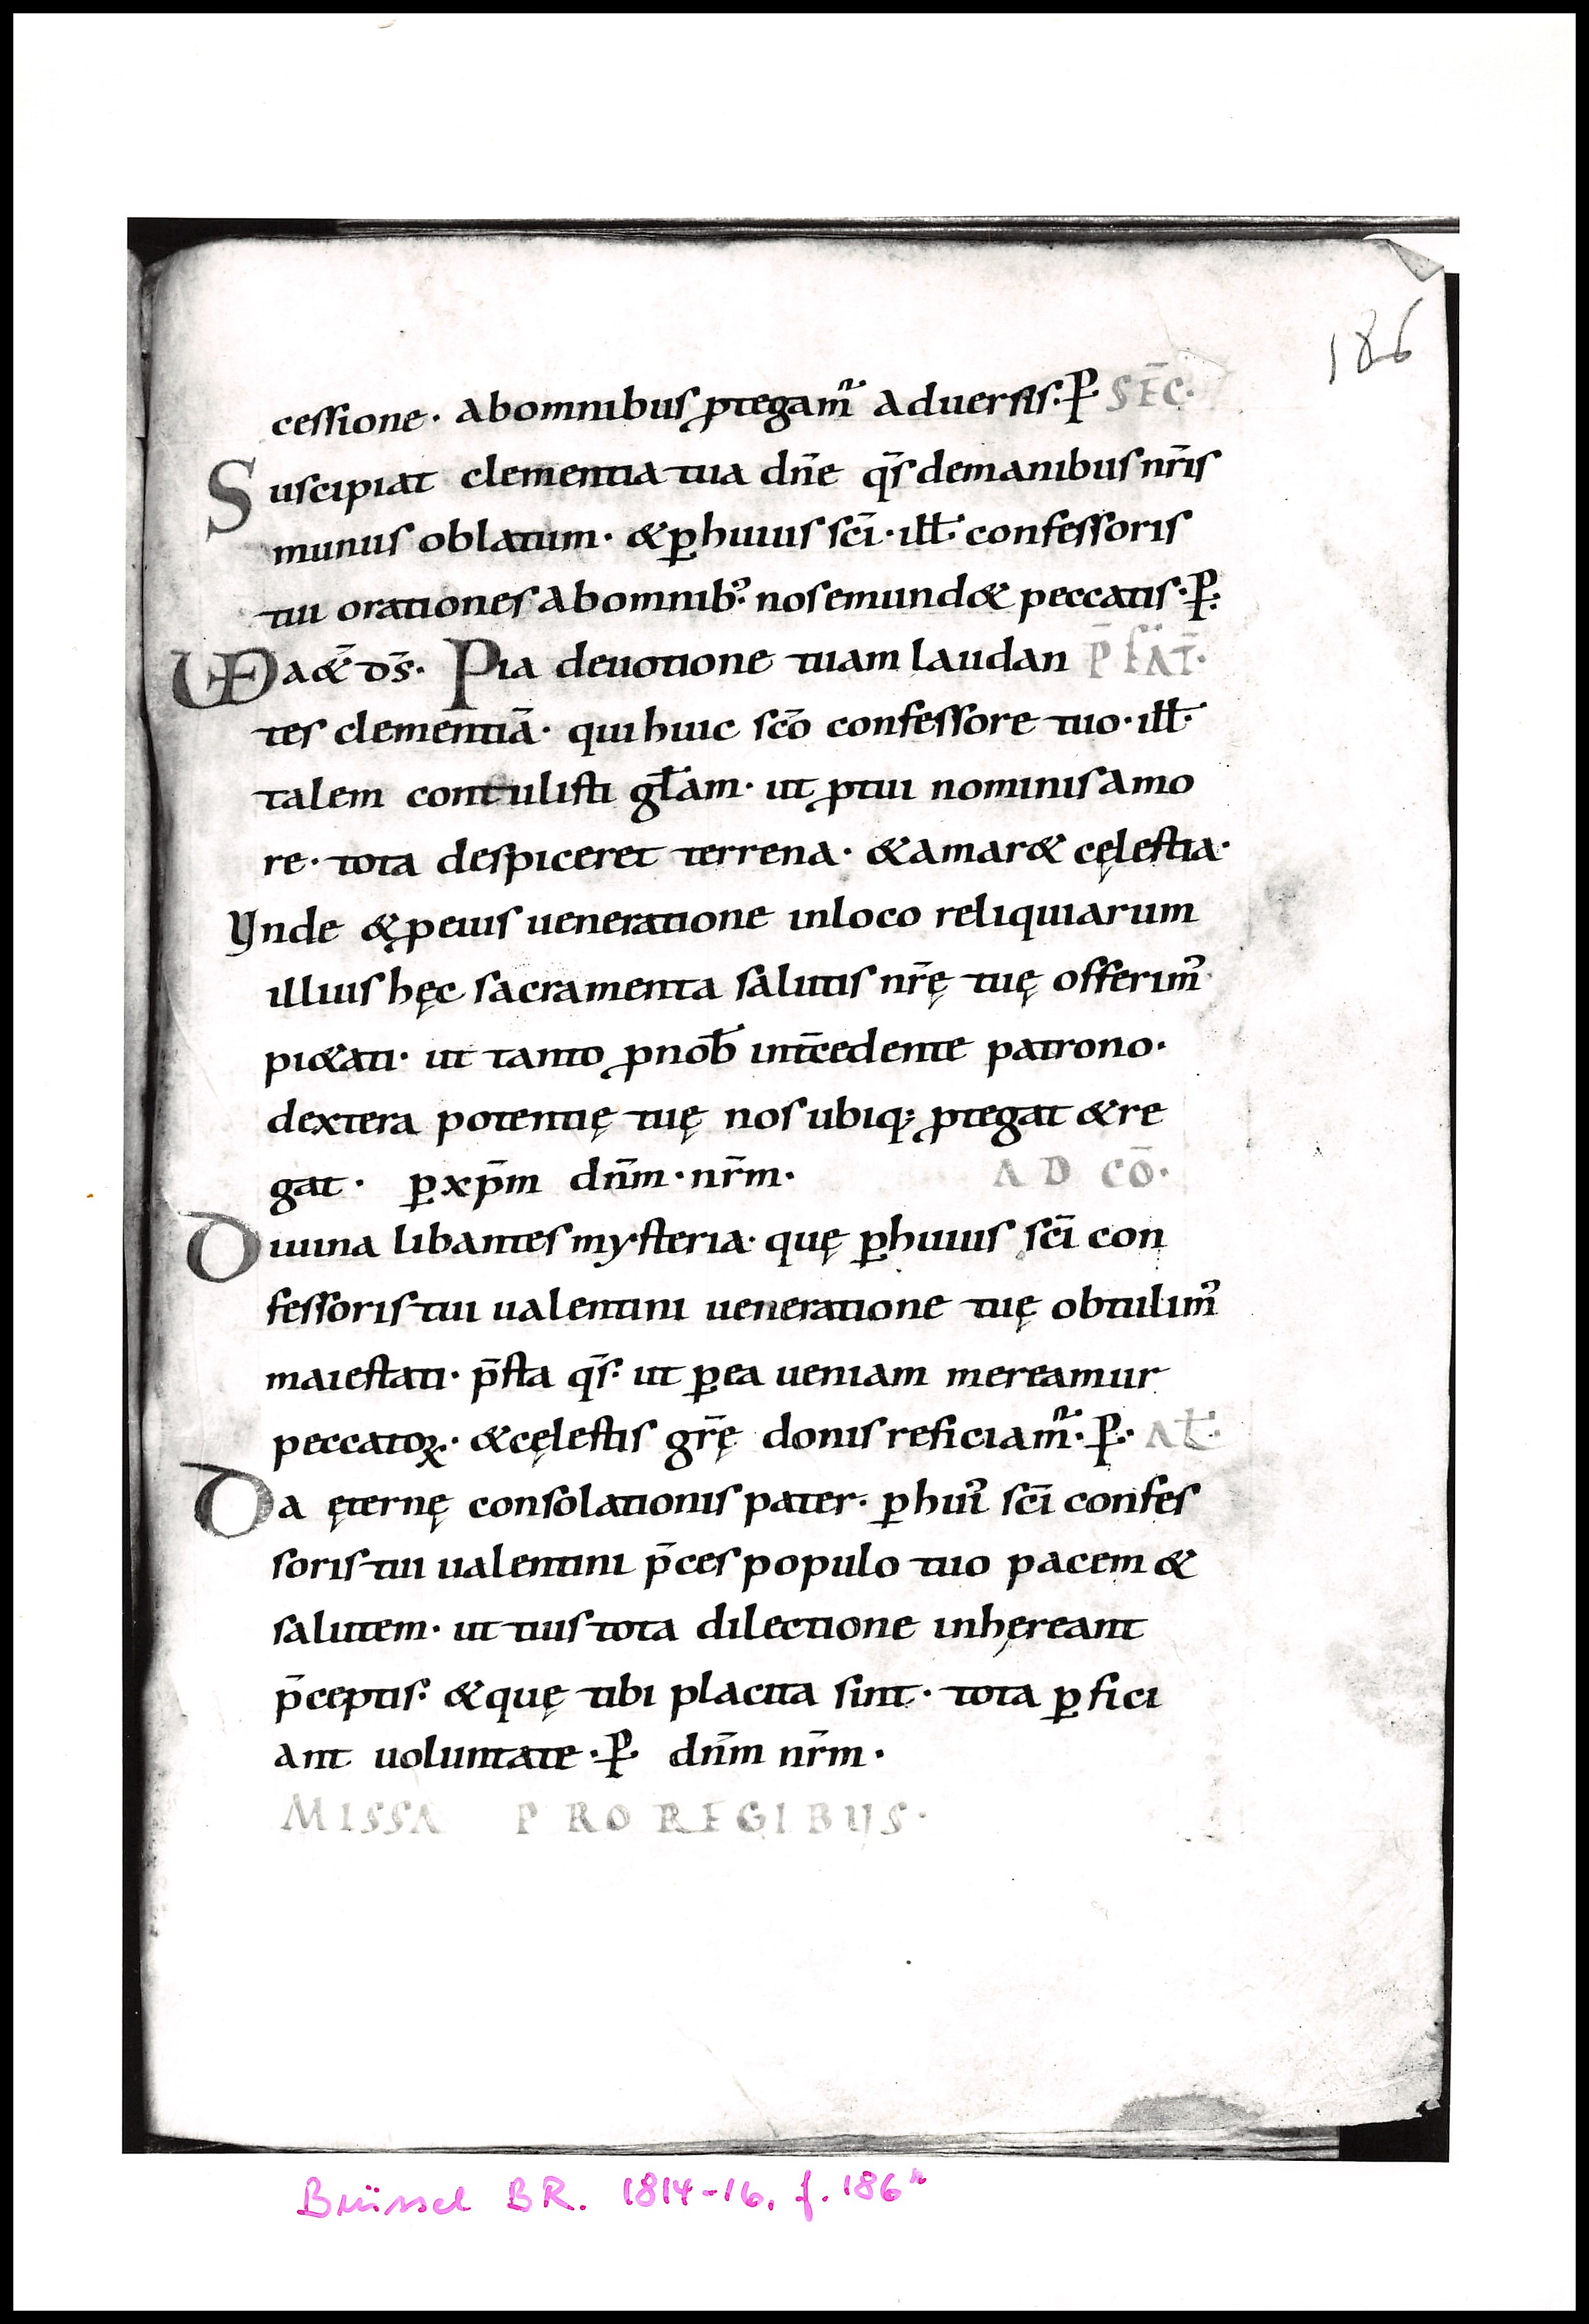 186
cessione· abomnibus ꝓtegam̃ aduersis· P̱· SEC̄·
Suscipiat clementia tua dn̄e qs̄ demanibus nr̄is
munus oblatum· &ꝑhuius sc̄i· ill̄· confessoris
tui orationes abomnib᾽· nosemund& peccatis· P̱·
UDa&̄ ds̄· Pia deuotione tuam laudan P̄FAT̄·
tes clementiā· quihuic sc̄o confessore tuo· ill̄·
talem contulisti gl̄am· ut ꝓtui nominisamo
re· tota despiceret terrena· &amar& cęlestia·
Vnde &ꝓeius ueneratione inloco reliquiarum
illius hęc sacramenta salutis nr̄ę tuę offerim᾽
pi&ati· ut tanto ꝓnob̄ int̄cedente patrono·
dextera potentię tuę nos ubiq; ꝓtegat &re
gat· ꝑxp̄m dn̄m· nr̄m· AD CŌ·
Diuina libantes mysteria· quę ꝑhuius sc̄i con
fessoris tui ualentini ueneratione tuę obtulim᾽
maiestati· p̄sta qs̄· ut ꝑea ueniam mereamur
peccatoꝝ· &cęlestis gr̄ę donis reficiam̃· P̱· AL̄·
Da ęternę consolationis pater· ꝑhui᾽ sc̄i confes
soris tui ualentini p̄ces populo tuo pacem &
salutem· ut tuis tota dilectione inhęreant
p̄ceptis· &quę tibi placita sint· tota ꝑfici
ant uoluntate· P̱ dn̄m nr̄m·
MISSA PRO REGIBUS·
Brüssel BR. 1814-16, f. 186ʳ